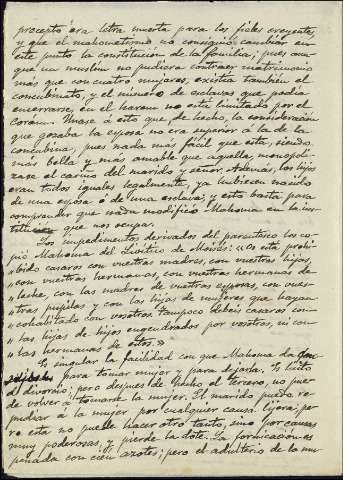 precepto éra letra muerta para los fieles creyentes,
y que el mahometismo no consiguió cambiar en
este punto la constitución de la familia; pues aun-
que un muslem no pudiera contraer matrimonio
más que con cuatro mujeres, existía también el
concubinato, y el número de esclavas que podía
encerrarse en el harem no está limitado por el
Corán. Unase á esto que, de hecho, la consideración
que gozaba la esposa no era superior á la de la
concubina, pues nada más fácil que esta, siendo
más bella y más amable que aquella, monopoli-
zase el cariño del marido y señor. Ademas, los hijos
eran todos iguales legalmente, ya hubiesen nacido
de una esposa ó de una esclava; y esto basta para
comprender que nada modificó Mahoma en la ins-
titución que nos ocupa.
Los impedimentos derivados del parentesco los co-
pió Mahoma del Levítico de Moisés: «Os está prohi-
«bido casaros con vuestras madres, con vuestras hijas,
«con vuestras hermanas, con vuestras hermanas de
«leche, con las madres de vuestras esposas, con vues-
«tras pupilas y con las hijas de mujeres que hayan
«cohabitado con vosotros. Tampoco debeis casaros con
«las hijas de hijos engendrados por vosotros, ni con
«las hermanas de estos.»
Es singular la facilidad con que Mahoma da
para tomar mujer y para dejarla. Es lícito
el divorcio; pero despues de hecho el tercero, no pue-
de volver á tomarse la mujer. El marido puede re-
pudiar á la mujer por cualquier causa ligera; pe-
ro esta no puede hacer otro tanto, sino por causas
muy poderosas, y pierde la dote. La fornicación es
penada con cien azotes; pero el adulterio de la mu-